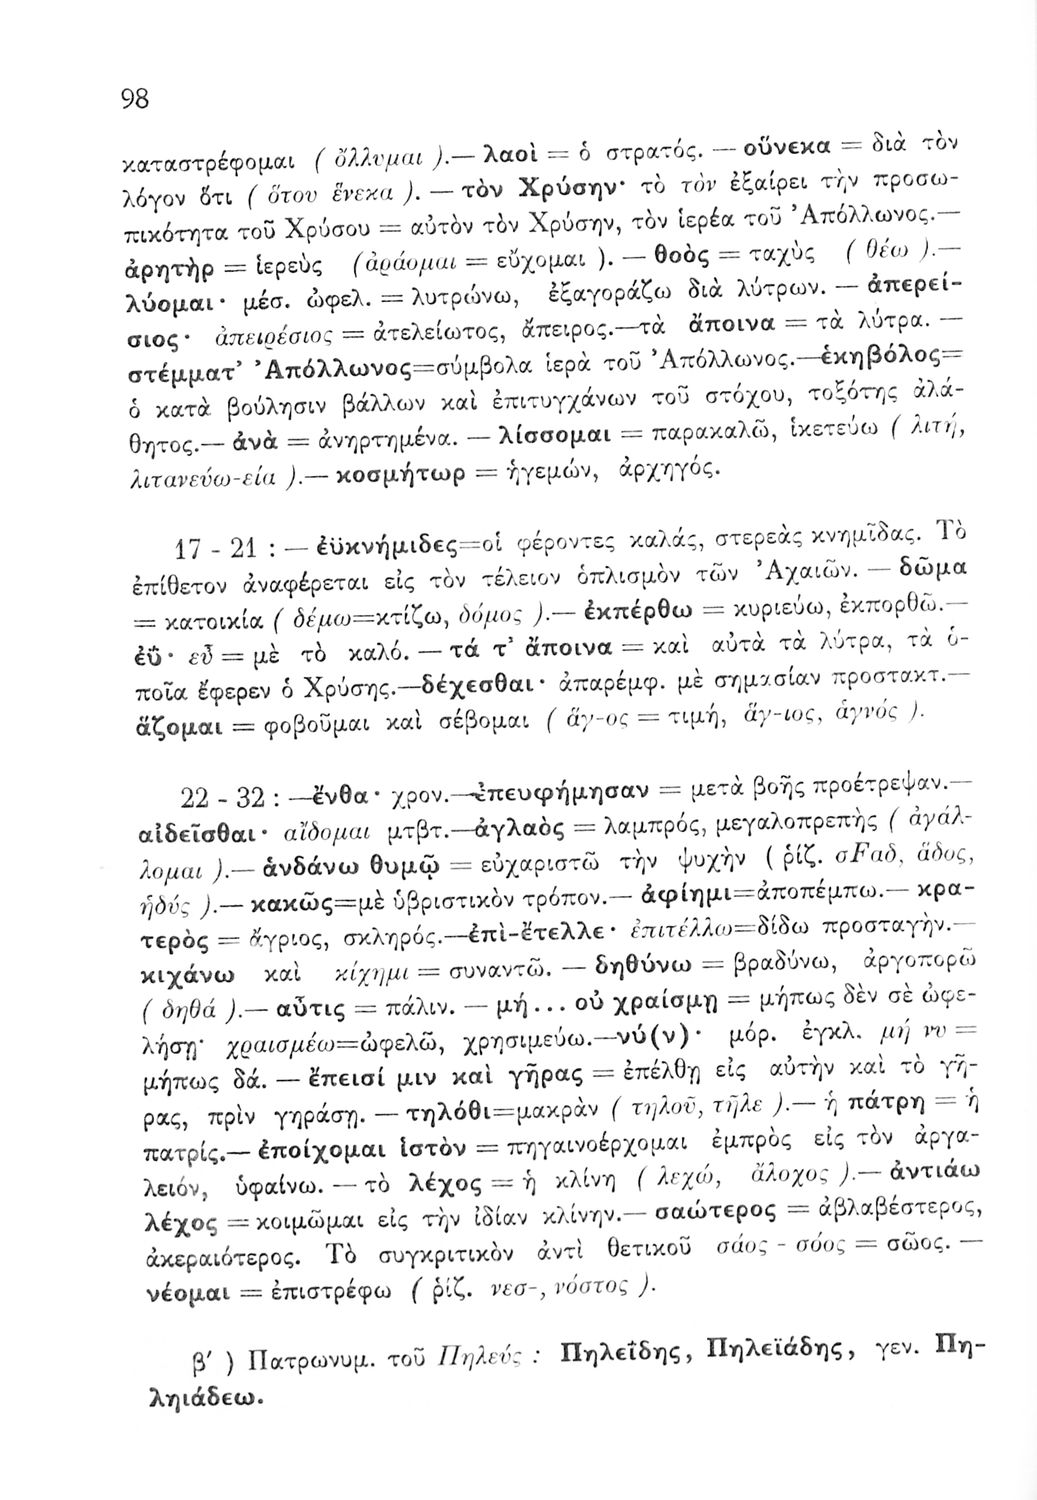 98
καταστρέφομαι ( ὄλλυμαι ).— λαοὶ = ὁ στρατός. — οὕνεκα = διὰ τὸν
λόγον ὅτι ( ὅτου ἕνεκα ). — τὸν Χρύσην· τὸ τὸν ἐξαίρει τὴν προσω-
πικότητα τοῦ Χρύσου = αὐτὸν τὸν Χρύσην, τὸν ἱερέα τοῦ Ἀπόλλωνος.—
ἀρητὴρ = ἱερεὺς (ἀράομαι = εὔχομαι ). — θοὸς = ταχὺς ( θέω ).—
λύομαι· μέσ. ὠφελ. = λυτρώνω, ἐξαγοράζω διὰ λύτρων. — ἀπερεί-
σιος· ἀπειρέσιος = ἀτελείωτος, ἄπειρος.—τὰ ἄποινα = τὰ λύτρα. —
στέμματ’ Ἀπόλλωνος=σύμβολα ἱερὰ τοῦ Ἀπόλλωνος.—ἑκηβόλος=
ὁ κατὰ βούλησιν βάλλων καὶ ἐπιτυγχάνων τοῦ στόχου, τοξότης ἀλά-
θητος.— ἀνὰ = ἀνηρτημένα. — λίσσομαι = παρακαλῶ, ἱκετεύω ( λιτή,
λιτανεύω-εία ).— κοσμήτωρ = ἡγεμών, ἀρχηγός.
17 - 21 : — ἐϋκνήμιδες=οἱ φέροντες καλάς, στερεὰς κνημῖδας. Τὸ
ἐπίθετον ἀναφέρεται εἰς τὸν τέλειον ὁπλισμὸν τῶν Ἀχαιῶν. — δῶμα
= κατοικία ( δέμω=κτίζω, δόμος ).— ἐκπέρθω = κυριεύω, ἐκπορθῶ.—
ἐΰ· εὖ = μὲ τὸ καλό. — τά τ’ ἄποινα = καὶ αὐτὰ τὰ λύτρα, τὰ ὁ-
ποῖα ἔφερεν ὁ Χρύσης.—δέχεσθαι· ἀπαρέμφ. μὲ σημασίαν προστακτ.—
ἄζομαι = φοβοῦμαι καὶ σέβομαι ( ἅγ-ος = τιμή, ἅγ-ιος, ἁγνός ).
22 - 32 : —ἔνθα· χρον.—ἐπευφήμησαν = μετὰ βοῆς προέτρεψαν.—
αἰδεῖσθαι· αἴδομαι μτβτ.—ἀγλαὸς = λαμπρός, μεγαλοπρεπὴς ( ἀγάλ-
λομαι ).— ἁνδάνω θυμῷ = εὐχαριστῶ τὴν ψυχὴν ( ῥίζ. σFαδ, ἅδος,
ἡδύς ).— κακῶς=μὲ ὑβριστικὸν τρόπον.— ἀφίημι=ἀποπέμπω.— κρα-
τερὸς = ἄγριος, σκληρός.—ἐπὶ-ἔτελλε· ἐπιτέλλω=δίδω προσταγὴν.—
κιχάνω καὶ κίχημι = συναντῶ. — δηθύνω = βραδύνω, ἀργοπορῶ
( δηθά ).— αὖτις = πάλιν. — μή... οὐ χραίσμῃ = μήπως δὲν σὲ ὠφε-
λήσῃ· χραισμέω=ὠφελῶ, χρησιμεύω.—νύ(ν)· μόρ. ἐγκλ. μή νυ =
μήπως δά. — ἔπεισί μιν καὶ γῆρας = ἐπέλθῃ εἰς αὐτὴν καὶ τὸ γῆ-
ρας, πρὶν γηράσῃ. — τηλόθι=μακρὰν ( τηλοῦ, τῆλε ).— ἡ πάτρη = ἡ
πατρίς.— ἐποίχομαι ἱστὸν = πηγαινοέρχομαι ἐμπρὸς εἰς τὸν ἀργα-
λειόν, ὑφαίνω. — τὸ λέχος = ἡ κλίνη ( λεχώ, ἄλοχος ).— ἀντιάω
λέχος = κοιμῶμαι εἰς τὴν ἰδίαν κλίνην.— σαώτερος = ἀβλαβέστερος,
ἀκεραιότερος. Τὸ συγκριτικὸν ἀντὶ θετικοῦ σάος - σόος = σῶος. —
νέομαι = ἐπιστρέφω ( ῥίζ. νεσ-, νόστος ).
β′ ) Πατρωνυμ. τοῦ Πηλεύς : Πηλεΐδης, Πηλεϊάδης, γεν. Πη-
ληιάδεω.